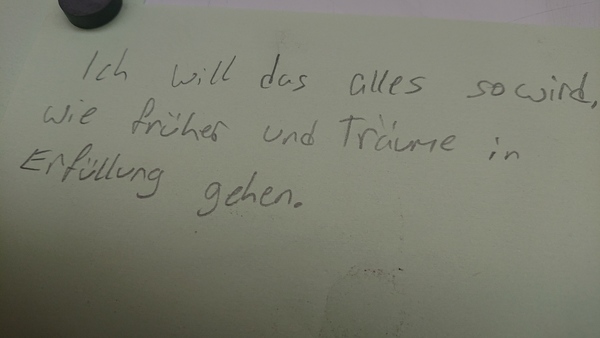 Ich will das alles so wird,
wie früher und Träume in
Erfüllung gehen.